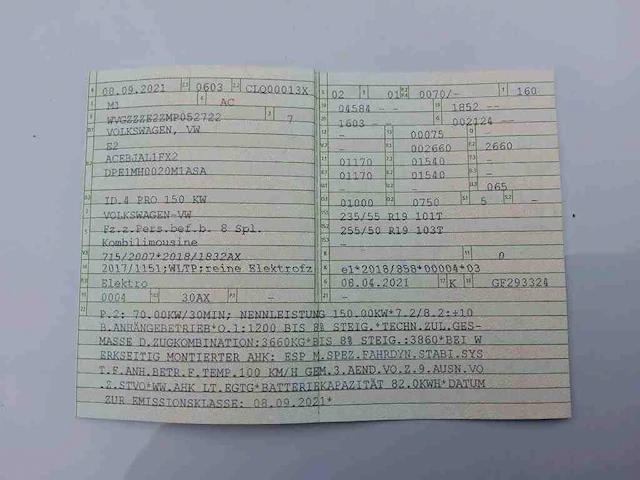 08.09.2021 0603 CLQ00013X
M1 AC
WVGZZZE2ZMP052722 7
VOLKSWAGEN, VW
E2
ACEBJAL1FX2
DPE1MH0020M1ASA
ID.4 PRO 150 KW
VOLKSWAGEN-VW
Fz.z.Pers.bef.b. 8 Spl.
Kombilimousine
715/2007*2018/1832AX
2017/1151;WLTP;reine Elektrofz
Elektro
0004 30AX -
02 01 0070/- 160
04584 -- 1852 --
1603 -- 002124 --
- 00075 -
- 002660 2660
01170 01540 -
01170 01540 -
- - 065
01000 0750 5 -
235/55 R19 101T
255/50 R19 103T
-
- 0
e1*2018/858*00004*03
08.04.2021 K GF293324
-
P.2: 70.00KW/30MIN; NENNLEISTUNG 150.00KW*7.2/8.2:+10
B.ANHÄNGEBETRIEB*O.1:1200 BIS 8% STEIG.*TECHN.ZUL.GES-
MASSE D.ZUGKOMBINATION:3660KG*BIS 8% STEIG.:3860*BEI W
ERKSEITIG MONTIERTER AHK: ESP M.SPEZ.FAHRDYN.STABI.SYS
T.F.ANH.BETR.F.TEMP.100 KM/H GEM.3.AEND.VO.Z.9.AUSN.VO
.Z.STVO*WW.AHK LT.EGTG*BATTERIEKAPAZITÄT 82.0KWH*DATUM
ZUR EMISSIONSKLASSE: 08.09.2021*